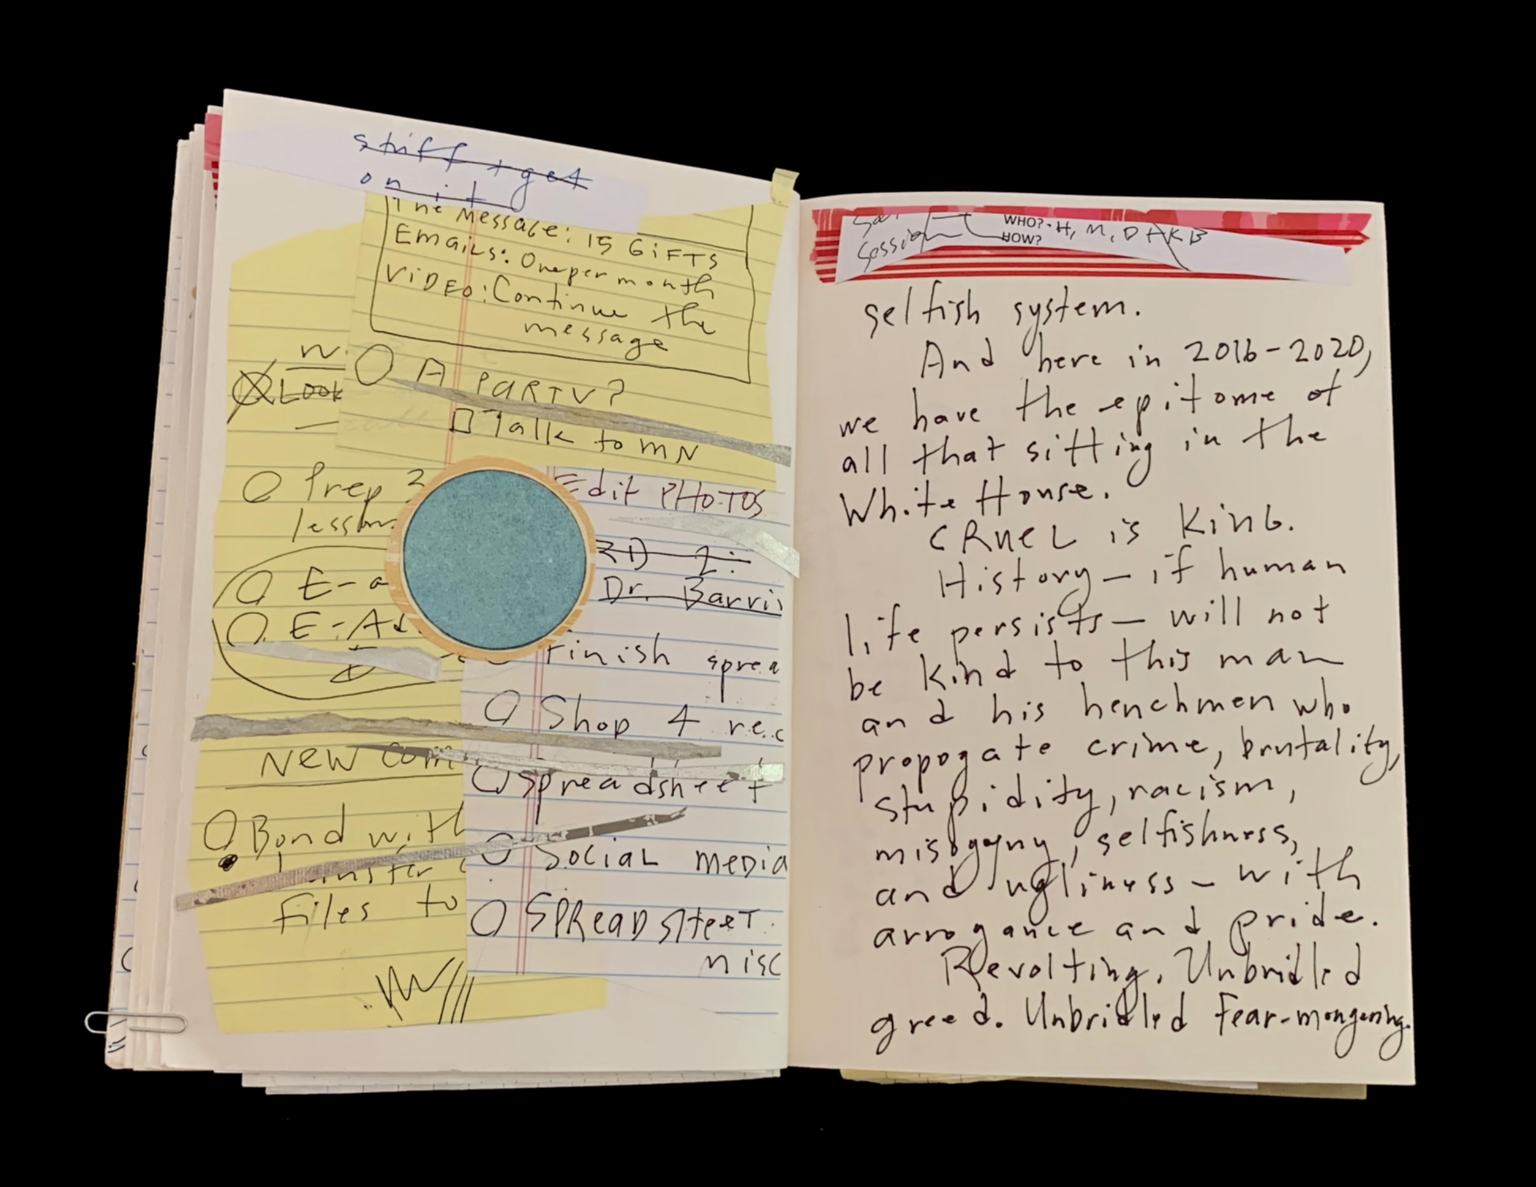 stuff + get
on it
The Message: 15 GiFTS
Emails: One per month
ViDEO: Continue the
message
A PARTY?
Look
Talk to MN
Prep 3
lesson
Edit PHOTOS
E-a
Dr. Barri
E-Ad
Finish sprea
Shop 4 rec
New com
Spreadsheet
Bond with
Social media
Files to
SPReadsheeT
misc
Session
WHO? · H, M, D + KB
HOW?
selfish system.
And here in 2016-2020,
we have the epitome of
all that sitting in the
White House.
CRUEL is KING.
History — if human
life persists — will not
be kind to this man
and his henchmen who
propogate crime, brutality,
stupidity, racism,
misogyny, selfishness,
and ugliness — with
arrogance and pride.
Revolting. Unbridled
greed. Unbridled Fear-mongering.